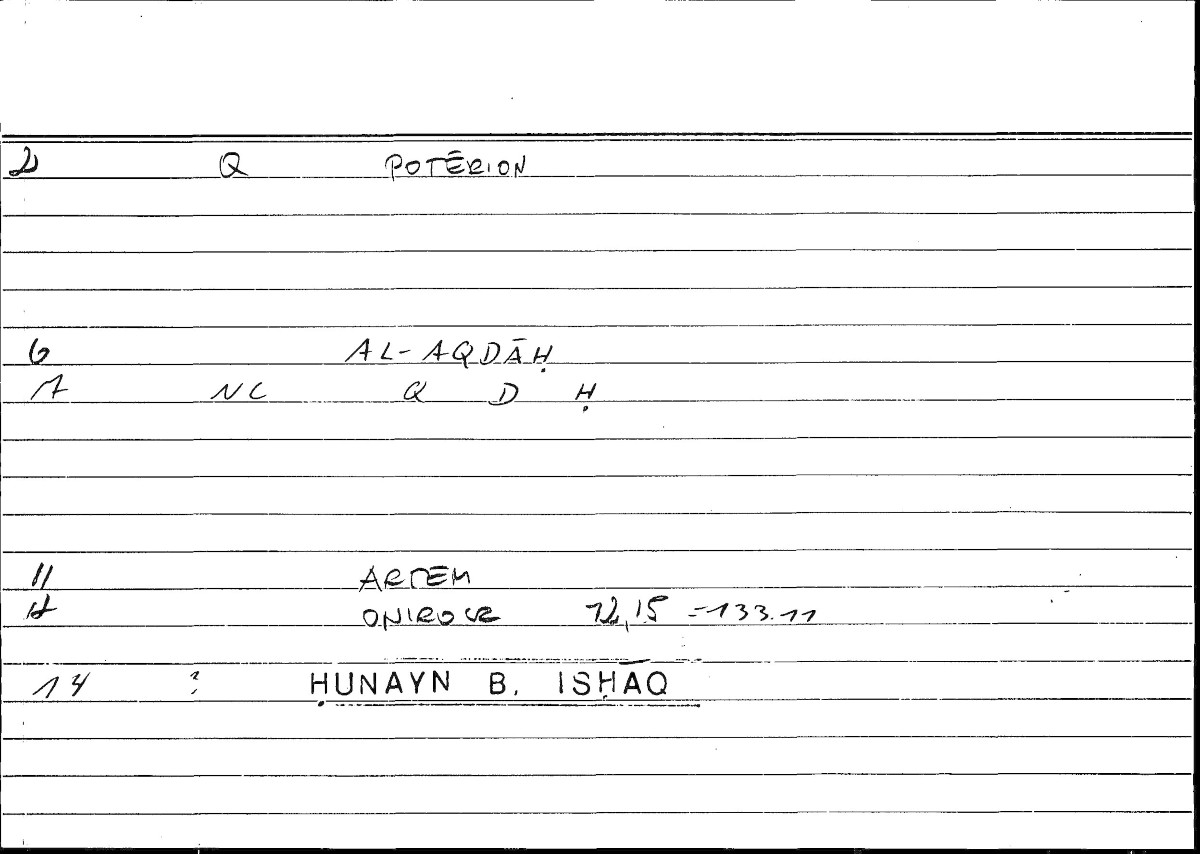 2 Q POTĒRION
6 AL-AQDĀḤ
7 NC Q D Ḥ
11 ARTEM
12 ONIROCR 72,15 =133.11
14 ? ḤUNAYN B. ISḤĀQ